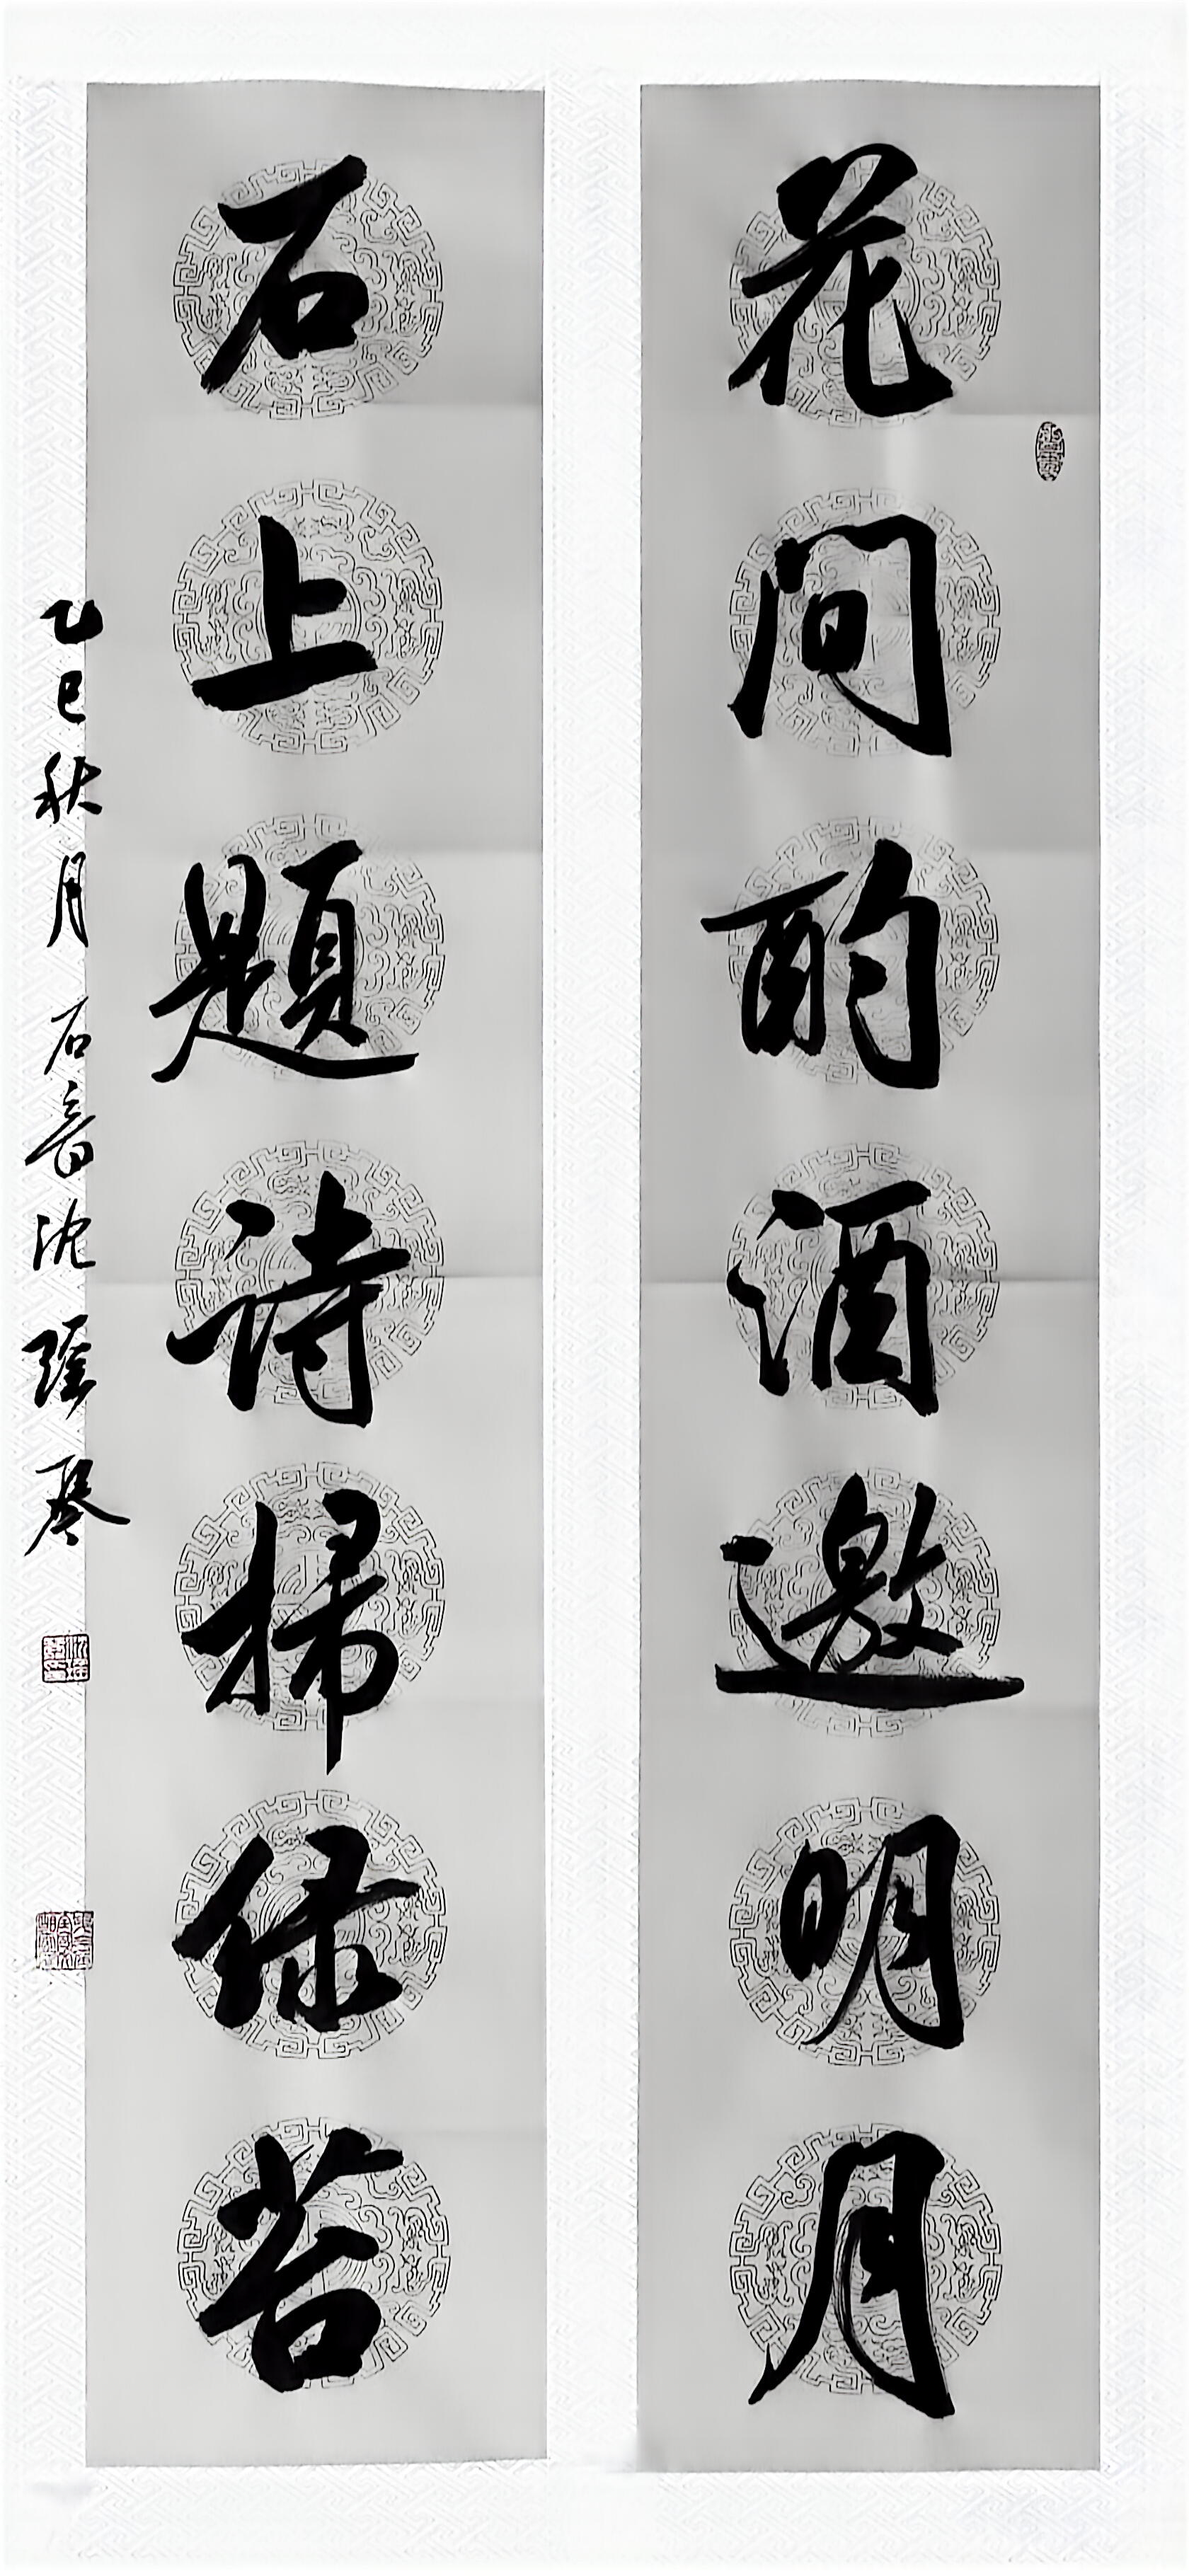 花间酌酒邀明月
石上题诗扫绿苔
乙巳秋月石音沈瑶琴